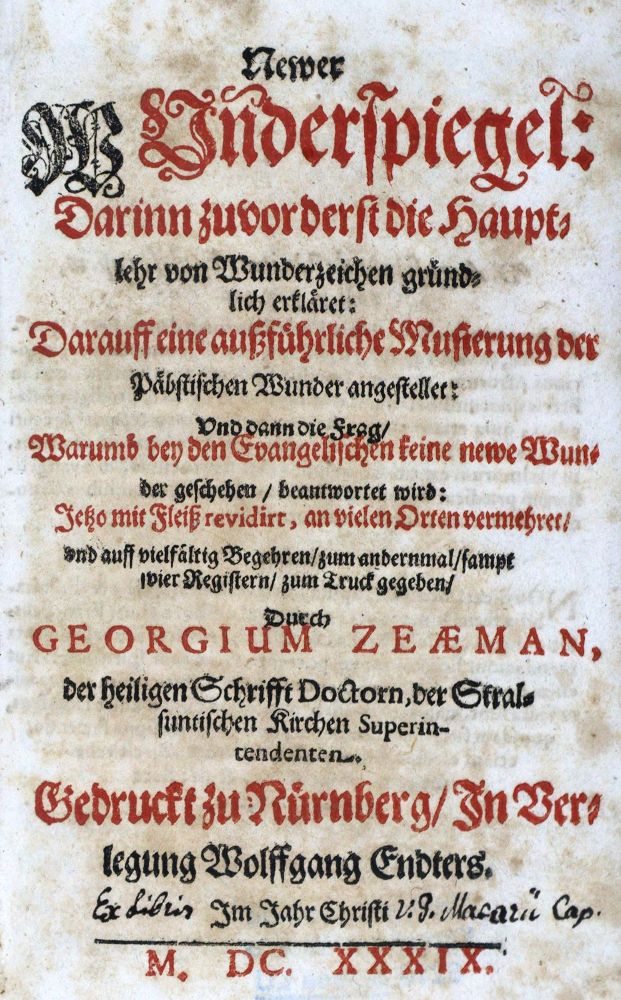 Newer
Wunderspiegel:
Darinn zuvorderst die Haupt-
lehr von Wunderzeichen gründ-
lich erkläret:
Darauff eine außführliche Musterung der
Päbstischen Wunder angestellet:
Und dann die Frag/
Warumb bey den Evangelischen keine newe Wun-
der geschehen / beantwortet wird:
Jetzo mit Fleiß revidirt, an vielen Orten vermehret/
und auff vielfältig Begehren/ zum andernmal/ sampt
vier Registern/ zum Truck gegeben/
Durch
GEORGIUM ZEÆMAN,
der heiligen Schrifft Doctorn, der Stral-
suntischen Kirchen Superin-
tendenten.
Gedruckt zu Nürnberg/ In Ver-
legung Wolffgang Endters.
Ex Libris Im Jahr Christi V. J. Macarii Cap.
M. DC. XXXIX.